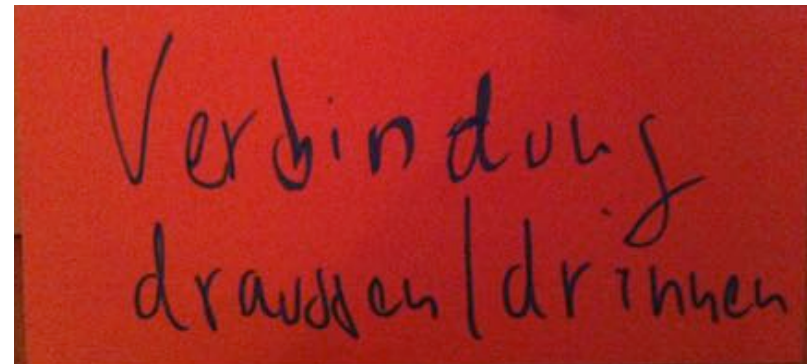 Verbindung
draussen/drinnen